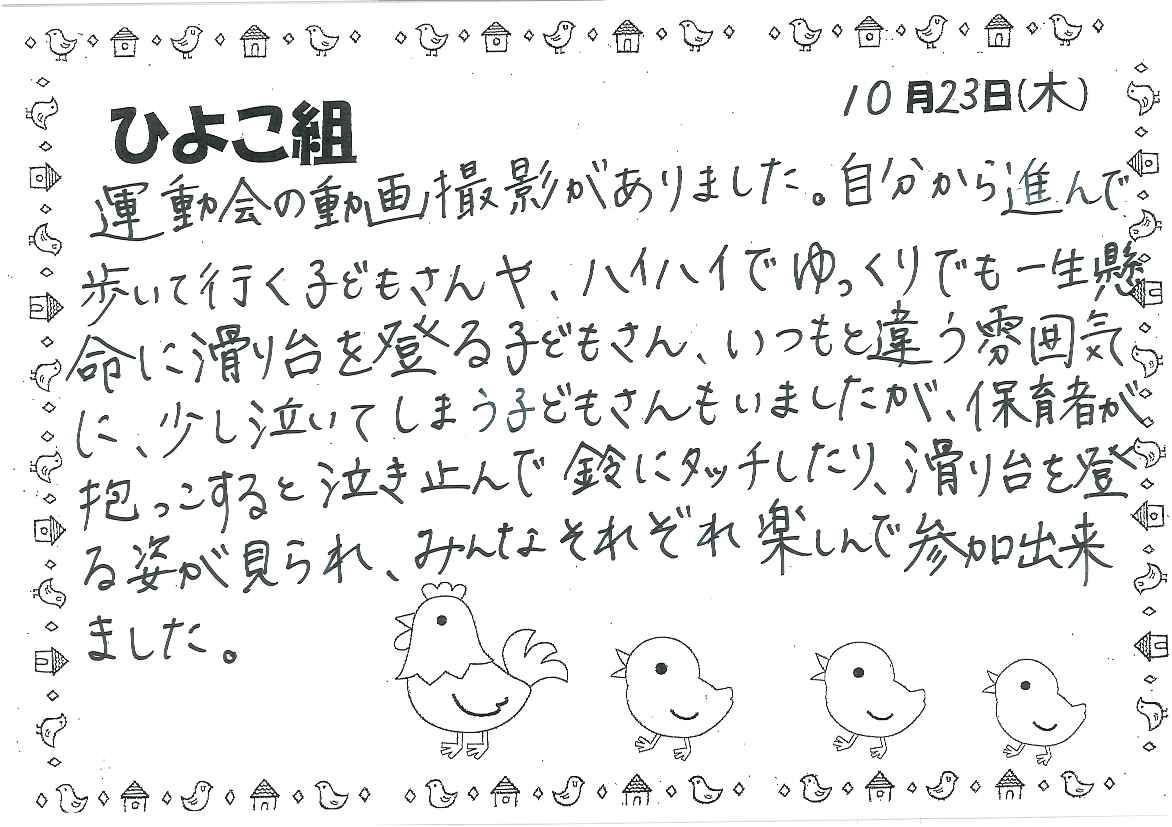 10月23日(木)
ひよこ組
運動会の動画撮影がありました。自分から進んで
歩いて行く子どもさんや、ハイハイでゆっくりでも一生懸
命に滑り台を登る子どもさん、いつもと違う雰囲気
に、少し泣いてしまう子どもさんもいましたが、保育者が
抱っこすると泣き止んで鈴にタッチしたり、滑り台を登
る姿が見られ、みんなそれぞれ楽しんで参加出来
ました。